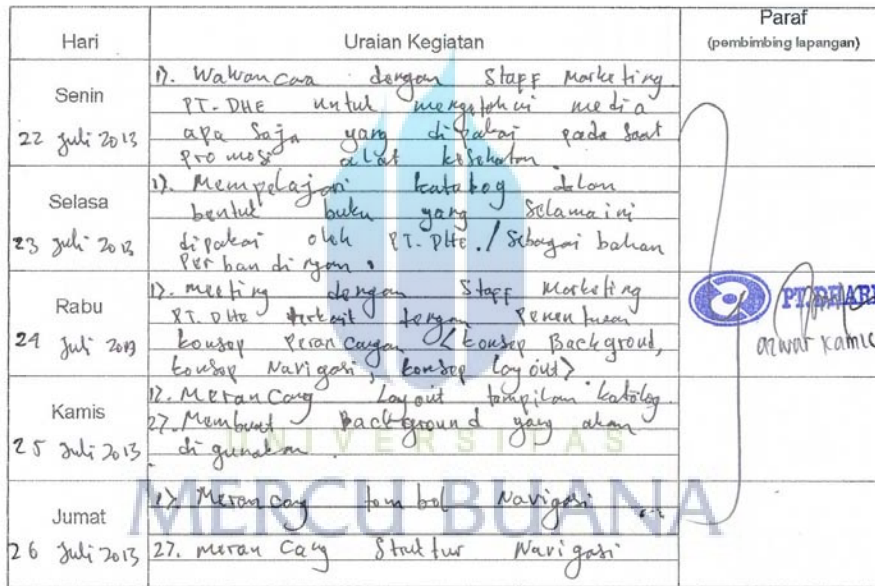 Hari Uraian Kegiatan Paraf
(pembimbing lapangan)
Senin
22 Juli 2013
1). Wawancara dengan Staff Marketing
PT. DHE untuk mengetahui media
apa Saja yang dipakai pada saat
promosi alat kesehatan
Selasa
23 Juli 2013
1). Mempelajari katalog dalam
bentuk buku yang selama ini
dipakai oleh PT. DHE. / Sebagai bahan
Perbandingan.
Rabu
24 Juli 2013
1). meeting dengan Staff Marketing
PT. DHE terkait dengan Penentuan
konsep Perancangan <konsep Backgroud,
konsep Navigasi, konsep layout>
PT.
azwar kamil
Kamis
25 Juli 2013
1). Merancang Layout tampilan katalog.
2). Membuat Background yang akan
di gunakan.
UNIVERSITAS
MERCU BUANA
Jumat
26 Juli 2013
1). Merancang tombol Navigasi
2). merancang Struktur Navigasi